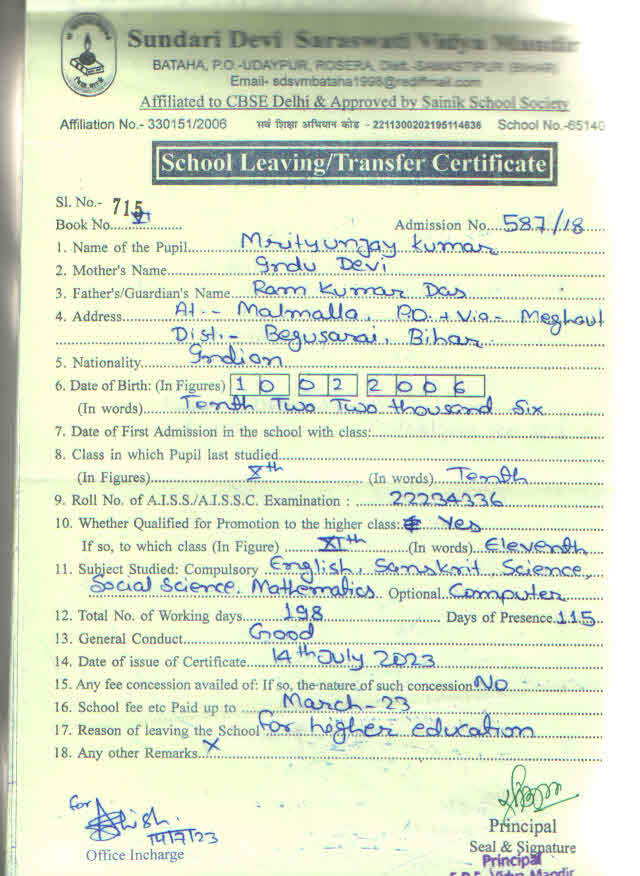 Sundari Devi Saraswati Vidya Mandir
BATAHA, P.O.-UDAYPUR, ROSERA, Distt.-SAMASTIPUR
Email- sdsvmbataha1998@rediffmail.com
Affiliated to CBSE Delhi & Approved by Sainik School Society
Affiliation No.- 330151/2006 सर्व शिक्षा अभियान कोड - 2211300202195114636 School No.-65140
School Leaving/Transfer Certificate
Sl. No.- 715
Book No. VI Admission No. 587/18
1. Name of the Pupil Mrityunjay Kumar
2. Mother's Name Indu Devi
3. Father's/Guardian's Name Ram Kumar Das
4. Address At.- Malmalla, P.O.+Via- Meghaul
Dist.- Begusarai, Bihar
5. Nationality Indian
6. Date of Birth: (In Figures) 10 02 2006
(In words) Tenth Two Two thousand Six
7. Date of First Admission in the school with class:
8. Class in which Pupil last studied
(In Figures) Xth (In words) Tenth
9. Roll No. of A.I.S.S./A.I.S.S.C. Examination : 22234336
10. Whether Qualified for Promotion to the higher class: Yes
If so, to which class (In Figure) XIth (In words) Eleventh
11. Subject Studied: Compulsory English, Sanskrit, Science,
Social Science, Mathematics Optional Computer
12. Total No. of Working days 198 Days of Presence 115
13. General Conduct Good
14. Date of issue of Certificate 14th July 2023
15. Any fee concession availed of: If so, the nature of such concession No
16. School fee etc Paid up to March-23
17. Reason of leaving the School For higher education
18. Any other Remarks X
for
14/7/23
Office Incharge
Principal
Seal & Signature
Principal
Vidya Mandir